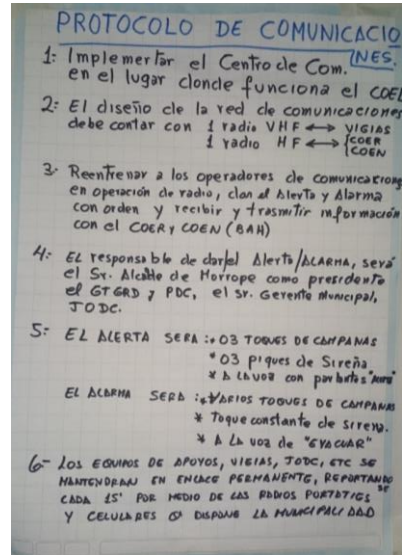 PROTOCOLO DE COMUNICACIO
NES.
1: Implementar el Centro de Com.
en el lugar donde funciona el COEL
2: El diseño de la red de comunicaciones
debe contar con 1 radio VHF ↔ VIGIAS
1 radio HF ↔ {COER
COEN
3. Reentrenar a los operadores de comunicaciones
en operación de radio, dan el Alerta y Alarma
con orden y recibir y trasmitir información
con el COER y COEN (BAH)
4: EL responsable de dar el Alerta/ALARMA, será
el Sr. Alcalde de Morrope como presidente
el GTGRD y PDC, el Sr. Gerente Municipal,
JODC.
5: EL ALERTA SERA :* 03 TOQUES DE CAMPANAS
* 03 piques de Sireña
* A LA VOZ con parlantes
EL ALARMA SERA :* VARIOS TOQUES DE CAMPANAS
* Toque constante de sirena.
* A LA VOZ de "EVACUAR"
6- LOS EQUIPOS DE APOYOS, VIGIAS, JODC, ETC SE
MANTENDRAN EN ENLACE PERMANENTE, REPORTANDOSE
CADA 15' POR MEDIO DE LAS RADIOS PORTATILES
Y CELULARES Q DISPONE LA MUNICIPALIDAD